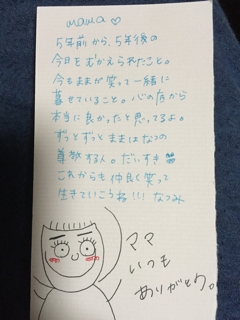 mama♡
5年前から、5年後の
今日をむかえられたこと。
今もままが笑って一緒に
暮せていること。心の底から
本当に良かったと思ってるよ。
ずっとずっとままはなつの
尊敬する人。だいすき
これからも仲良く笑って
生きていこうね!!! なつみ
ママ
いつも
ありがとう。